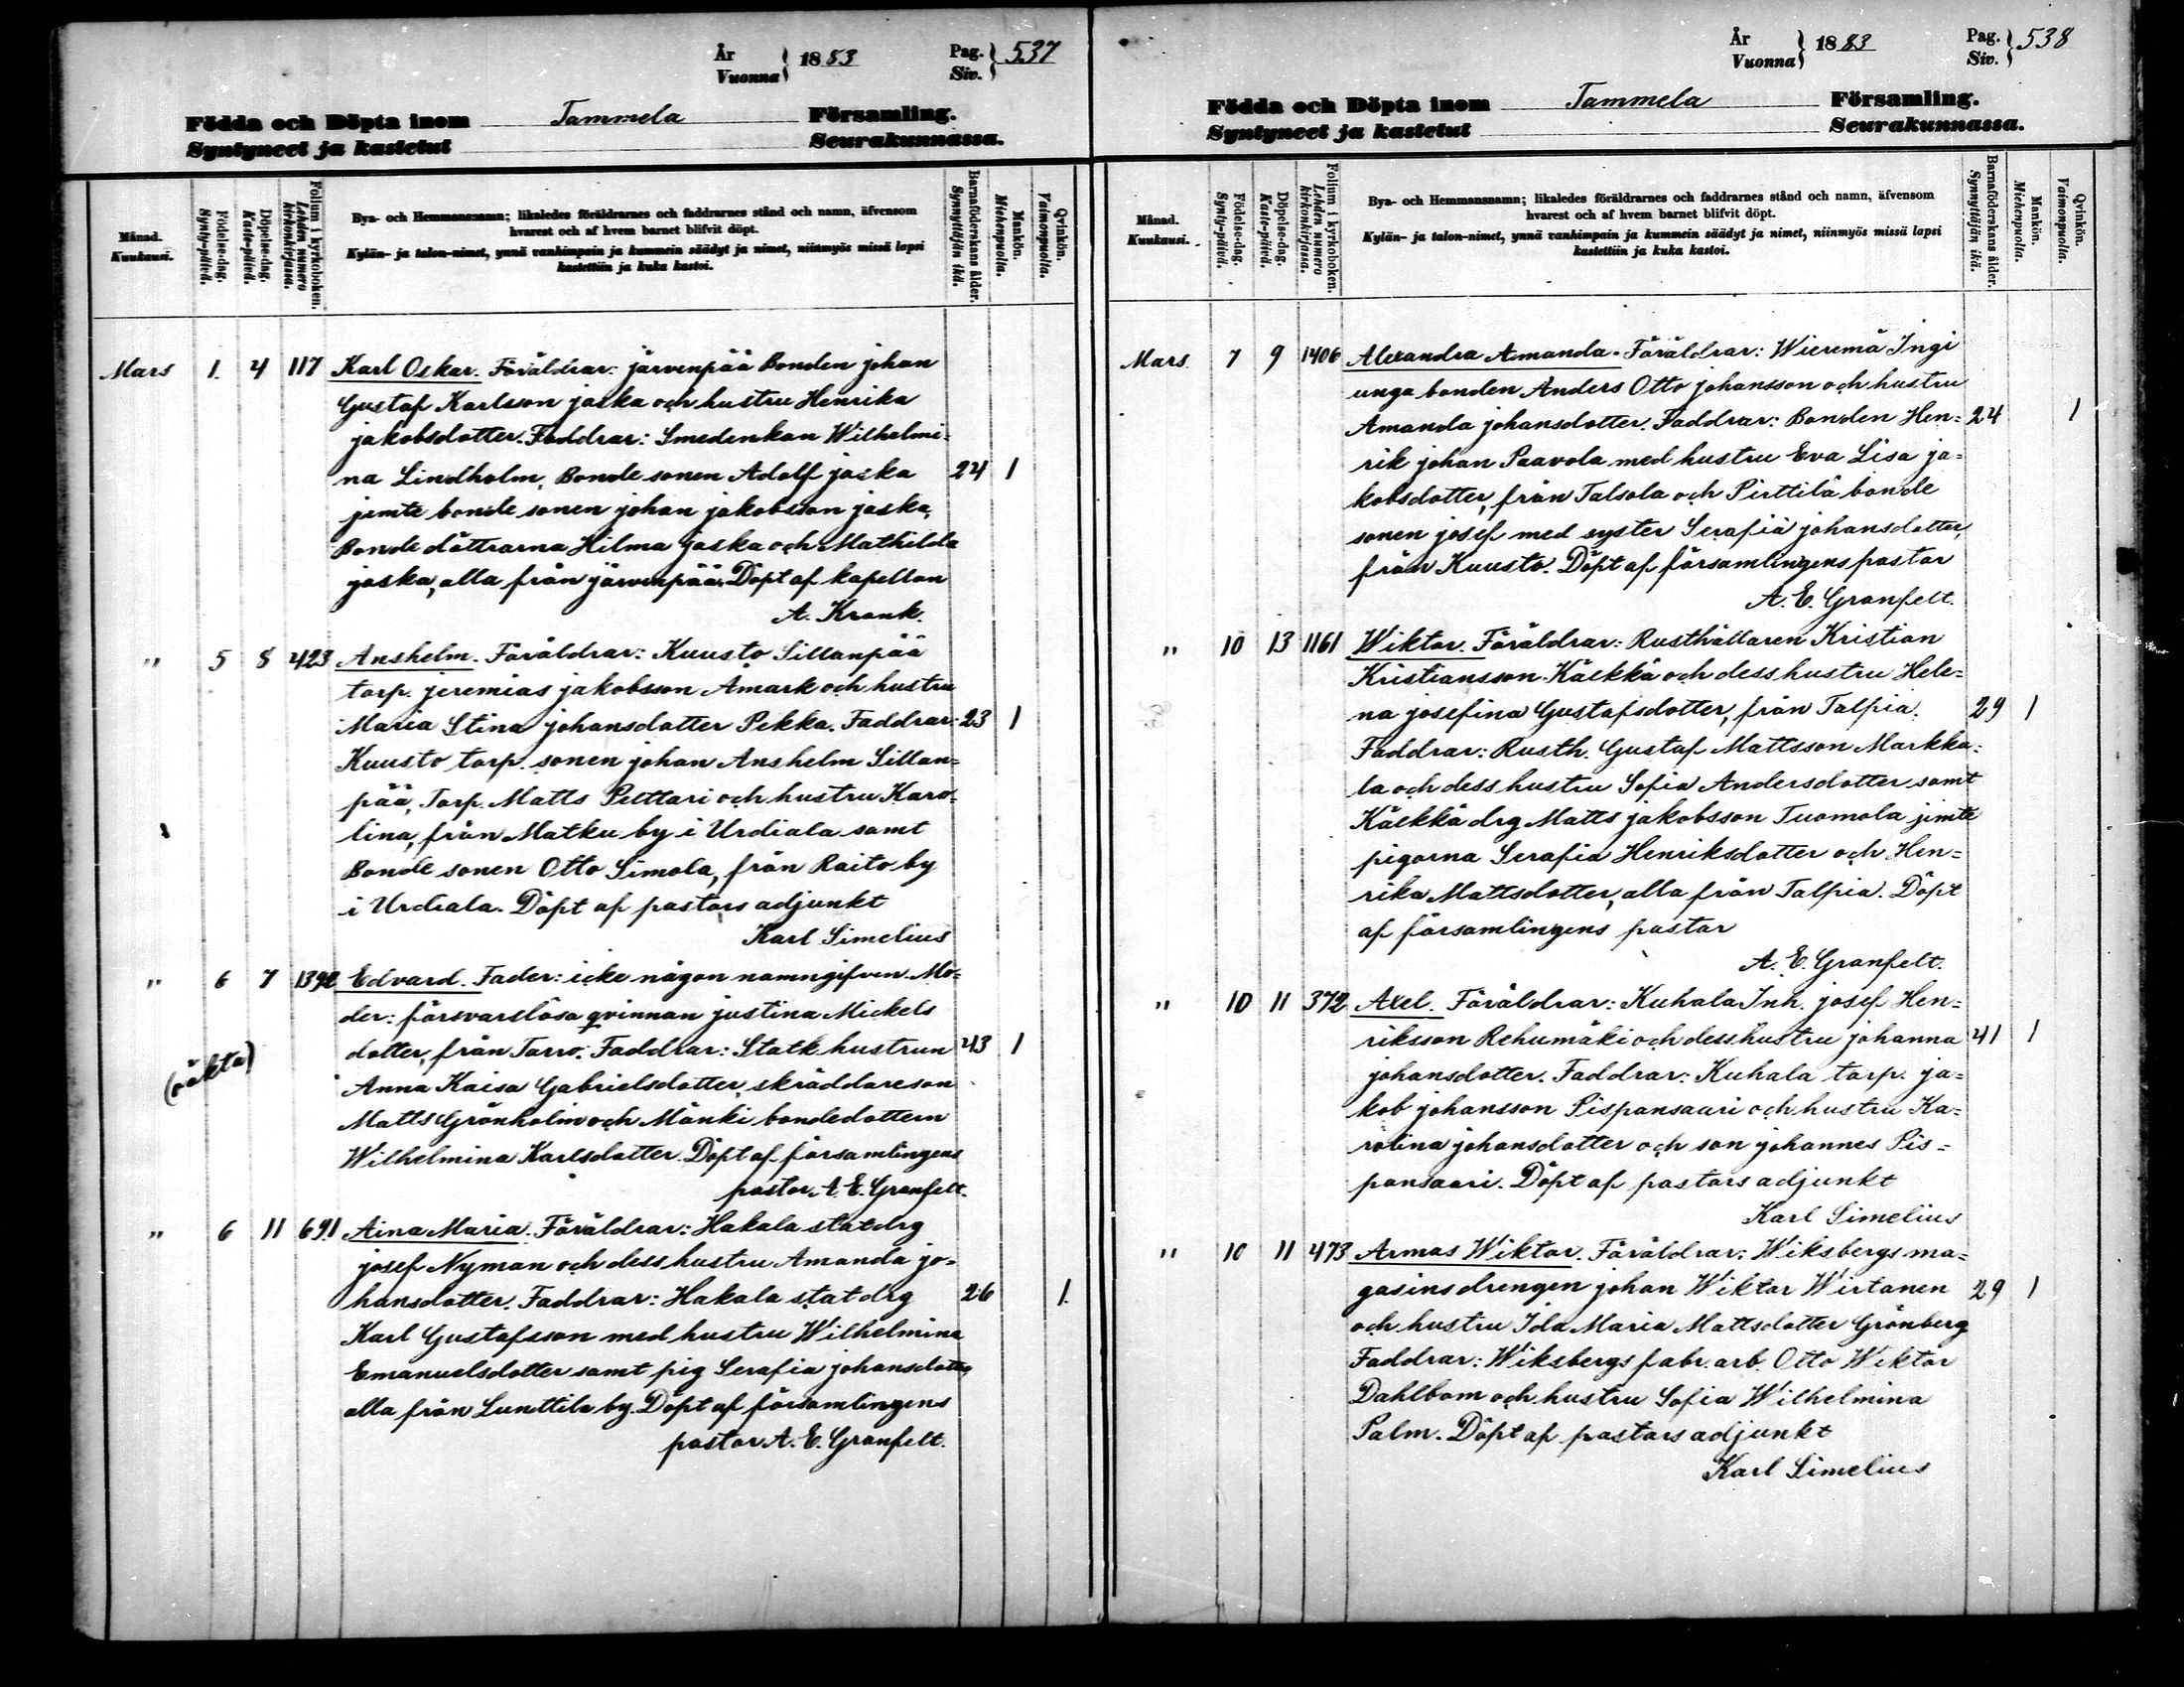 År
Vuonna } 1883
Pag.
Siv. } 537
Födda och Döpta inom Tammela Församling.
Syntyneet ja kastetut Seurakunnassa.
Månad.
Kuukausi.
Födelse-dag.
Synty-päivä.
Döpelse-dag.
Kaste-päivä.
Folium i kyrkoboken.
Lehden numero
kirkonkirjassa.
Bya- och Hemmansnamn; likaledes föräldrarnes och faddrarnes stånd och namn, äfvensom
hvarest och af hvem barnet blifvit döpt.
Kylän- ja talon-nimet, ynnä vanhimpain ja kummein säädyt ja nimet, niinmyös missä lapsi
kastettiin ja kuka kastoi.
Barnaföderskans ålder.
Synnyttäjän ikä.
Mankön.
Miehenpuolia.
Qvinkön.
Vaimonpuolia.
Mars 1. 4 117 Karl Oskar. Föräldrar: järvenpää Bonden johan
Gustaf Karlsson jaska och hustru Henrika
jakobsdotter. Faddrar: Smedenkan Wilhelmi-
na Lindholm, Bonde sonen Adolf jaska 24 1
jemte bonde sonen johan jakobsson jaska,
Bonde döttrarna Hilma jaska och Mathilda
jaska, alla från järvenpää. Döpt af kapellan
A. Krank.
" 5 8 423 Anshelm. Föräldrar: Kuusto Sillanpää
torp. jeremias jakobsson Amark och hustru
Maria Stina johansdotter Pekka. Faddrar: 23 1
Kuusto torp. sonen johan Anshelm Sillan=
pää, Torp. Matts Pelttari och hustru Karo-
lina, från Matku by i Urdiala samt
Bonde sonen Otto Simola, från Raito by
i Urdiala. Döpt af pastors adjunkt
Karl Simelius
" 6 7 1392 Edvard. Fader: icke någon namngifven. Mo=
der: försvarslösa qvinnan justina Mickels
dotter, från Torro. Faddrar: Statk. hustrun 43 1
(oäkta)
Anna Kaisa Gabrielsdotter, skräddareson
Matts Grönholm och Mänki bondedottern
Wilhelmina Karlsdotter. Döpt af församlingens
pastor A. E. Granfelt.
" 6 11 691 Aina Maria. Föräldrar: Hakala statdrg
josef Nyman och dess hustru Amanda jo=
hansdotter. Faddrar: Hakala statdrg 26 1.
Karl Gustafsson med hustru Wilhelmina
Emanuelsdotter samt pig Serafia johansdotter,
alla från Lunttila by. Döpt af församlingens
pastor A. E. Granfelt.
År
Vuonna } 1883
Pag.
Siv. } 538
Födda och Döpta inom Tammela Församling.
Syntyneet ja kastetut Seurakunnassa.
Månad.
Kuukausi.
Födelse-dag.
Synty-päivä.
Döpelse-dag.
Kaste-päivä.
Folium i kyrkoboken.
Lehden numero
kirkonkirjassa.
Bya- och Hemmansnamn; likaledes föräldrarnes och faddrarnes stånd och namn, äfvensom
hvarest och af hvem barnet blifvit döpt.
Kylän- ja talon-nimet, ynnä vanhimpain ja kummein säädyt ja nimet, niinmyös missä lapsi
kastettiin ja kuka kastoi.
Barnaföderskans ålder.
Synnyttäjän ikä.
Mankön.
Miehenpuolia.
Qvinkön.
Vaimonpuolia.
Mars 7 9 1406 Alexandra Amanda. Föräldrar: Wieremä Ingi
unga bonden Anders Otto johansson och hustru
Amanda johansdotter. Faddrar: Bonden Hen= 24 1
rik johan Paavola med hustru Eva Lisa ja=
kobsdotter, från Talsola och Pirttilä bonde
sonen josef med syster Serafia johansdotter,
från Kuusto. Döpt af församlingens pastor
A. E. Granfelt.
" 10 13 1161 Wiktor. Föräldrar: Rusthållaren Kristian
Kristiansson Käekkä och dess hustru Hele=
na josefina Gustafsdotter, från Talpia. 29 1
Faddrar: Rusth. Gustaf Mattsson Markka=
la och dess hustru Sofia Andersdotter samt
Käekkä drg Matts jakobsson Tuomola jemte
pigorna Serafia Henriksdotter och Hen=
rika Mattsdotter, alla från Talpia. Döpt
af församlingens pastor
A. E. Granfelt.
" 10 11 372 Axel. Föräldrar: Kuhala Inh. josef Hen=
riksson Rehumäki och dess hustru johanna 41 1
johansdotter. Faddrar: Kuhala torp. ja=
kob johansson Pispansaari och hustru Ka=
rolina johansdotter och son johannes Pis=
pansaari. Döpt af pastors adjunkt
Karl Simelius
" 10 11 473 Armas Wiktor. Föräldrar: Wiksbergs ma=
gasinsdrengen johan Wiktor Wirtanen 29 1
och hustru Ida Maria Mattsdotter Grönberg
Faddrar: Wiksbergs fabr. arb. Otto Wiktor
Dahlbom och hustru Sofia Wilhelmina
Palm. Döpt af pastors adjunkt
Karl Simelius